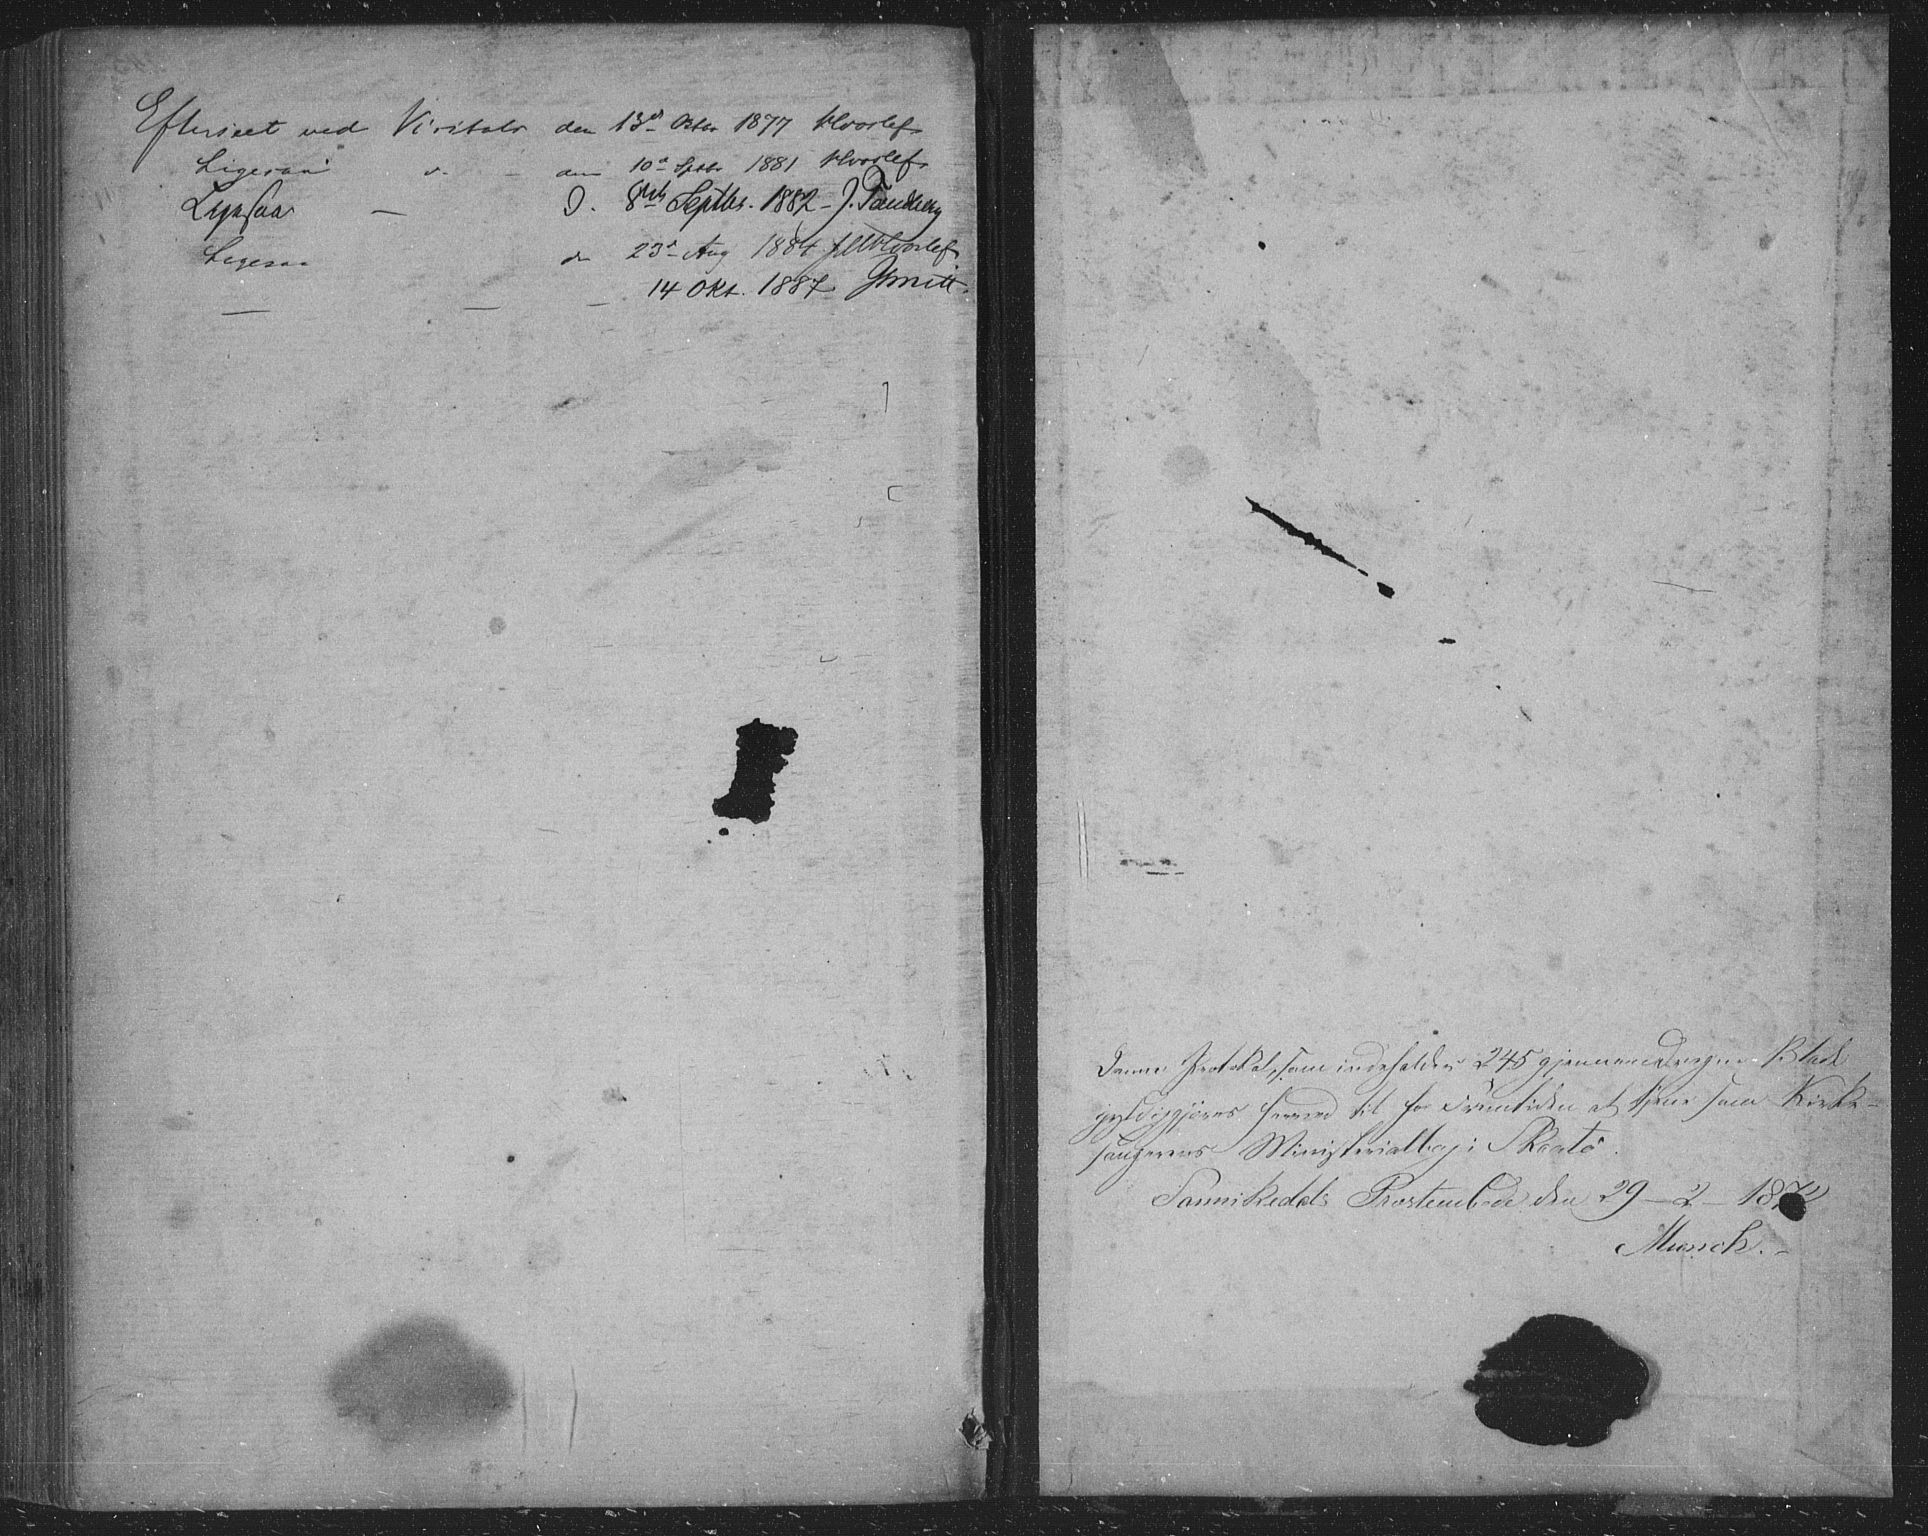 Efterseet ved Visitats den 13de Oktbr 1877 Hvoslef
Ligesaa v. - den 10de Septbr 1881 Hvoslef
Ligesaa — D. 8de Septbr. 1882 - J. Tandberg
Ligesaa d 23de Aug 1884 Hvoslef
— — — 14 Okt. 1887 Smitt.
Denne Protokol, som indeholder 245 gjennemdragne Blade
gyldiggjøres herved til for Fremtiden at tjene som Kirke-
sangerens Ministerialbog i Skaatø.
Sannikedals Prostembede den 29-2-1872
Munch.-